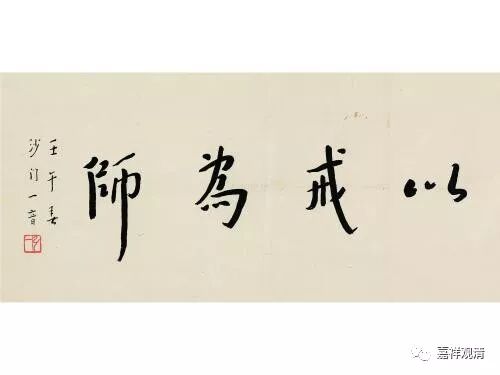 以戒為師
壬午春
沙門一音
嘉祥观清